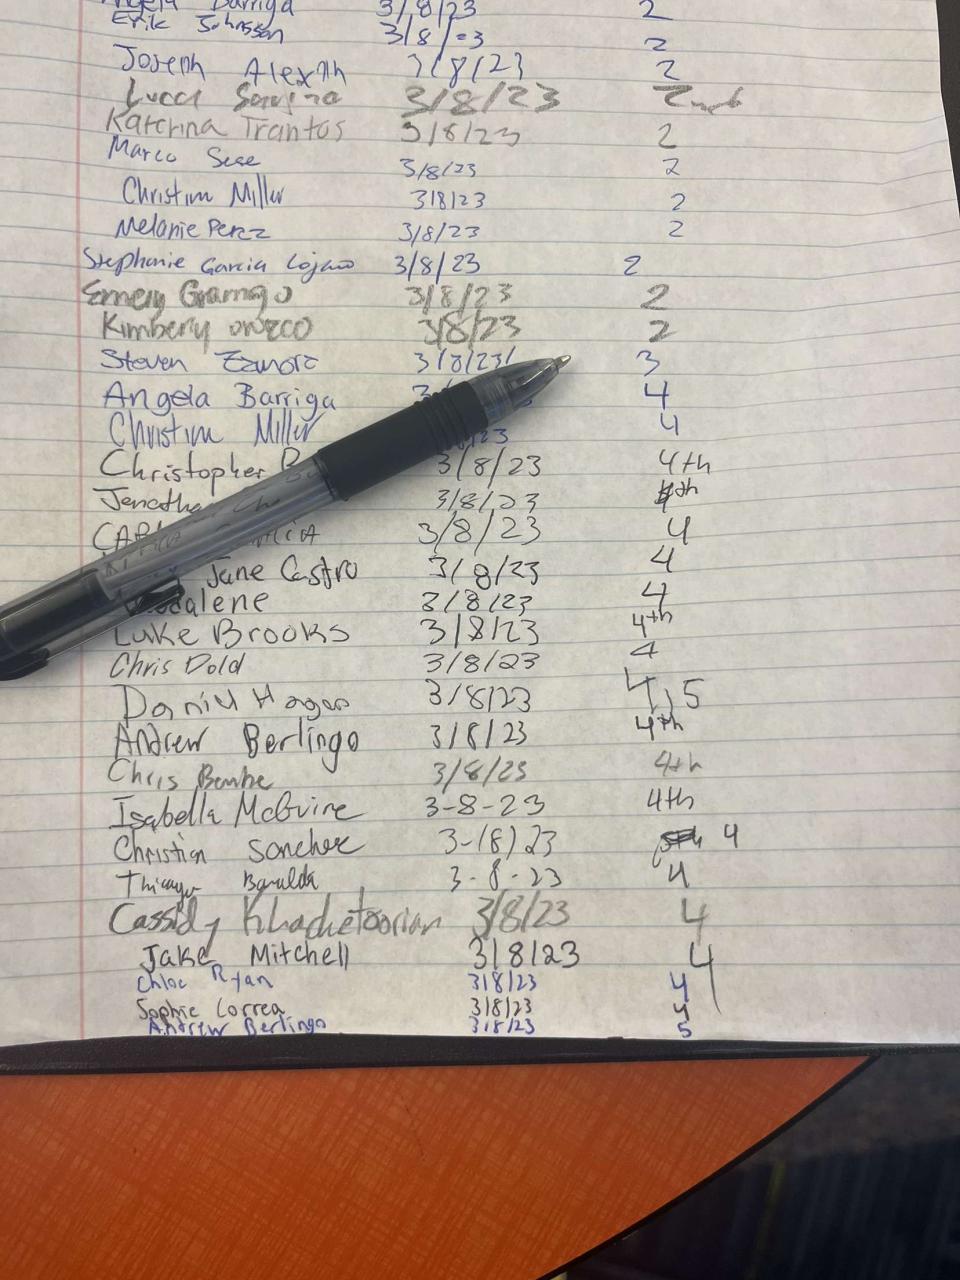 Angela Barriga 3/8/23 2
Erik Johnson 3/8/23 2
Joseph 3/8/23 2
Lucca 3/8/23 2nd
Katerina Trantos 3/8/23 2
Marco Sese 3/8/23 2
Christina Miller 3/8/23 2
Melanie Perez 3/8/23 2
Stephanie Garcia Lojano 3/8/23 2
Emery 3/8/23 2
Kimbery orozco 3/8/23 2
Steven Zamora 3/8/23 3
Angela Barriga 4
Christina Miller 4
Christopher 3/8/23 4th
3/8/23 4th
3/8/23 4
Jane Castro 3/8/23 4
3/8/23 4
Luke Brooks 3/8/23 4th
Chris Dold 3/8/23 4
Daniel Hagan 3/8/23 4,5
Andrew Berlingo 3/8/23 4th
Chris 3/8/23 4th
Isabella McGuire 3-8-23 4th
Christian Sanchez 3-(8)23 4
3-8-23 4
Cassidy Khachetoorian 3/8/23 4
Jake Mitchell 3/8/23 4
Chloe Ryan 3/8/23 4
Sophie Correa 3/8/23 4
Andrew Berlingo 3/8/23 5